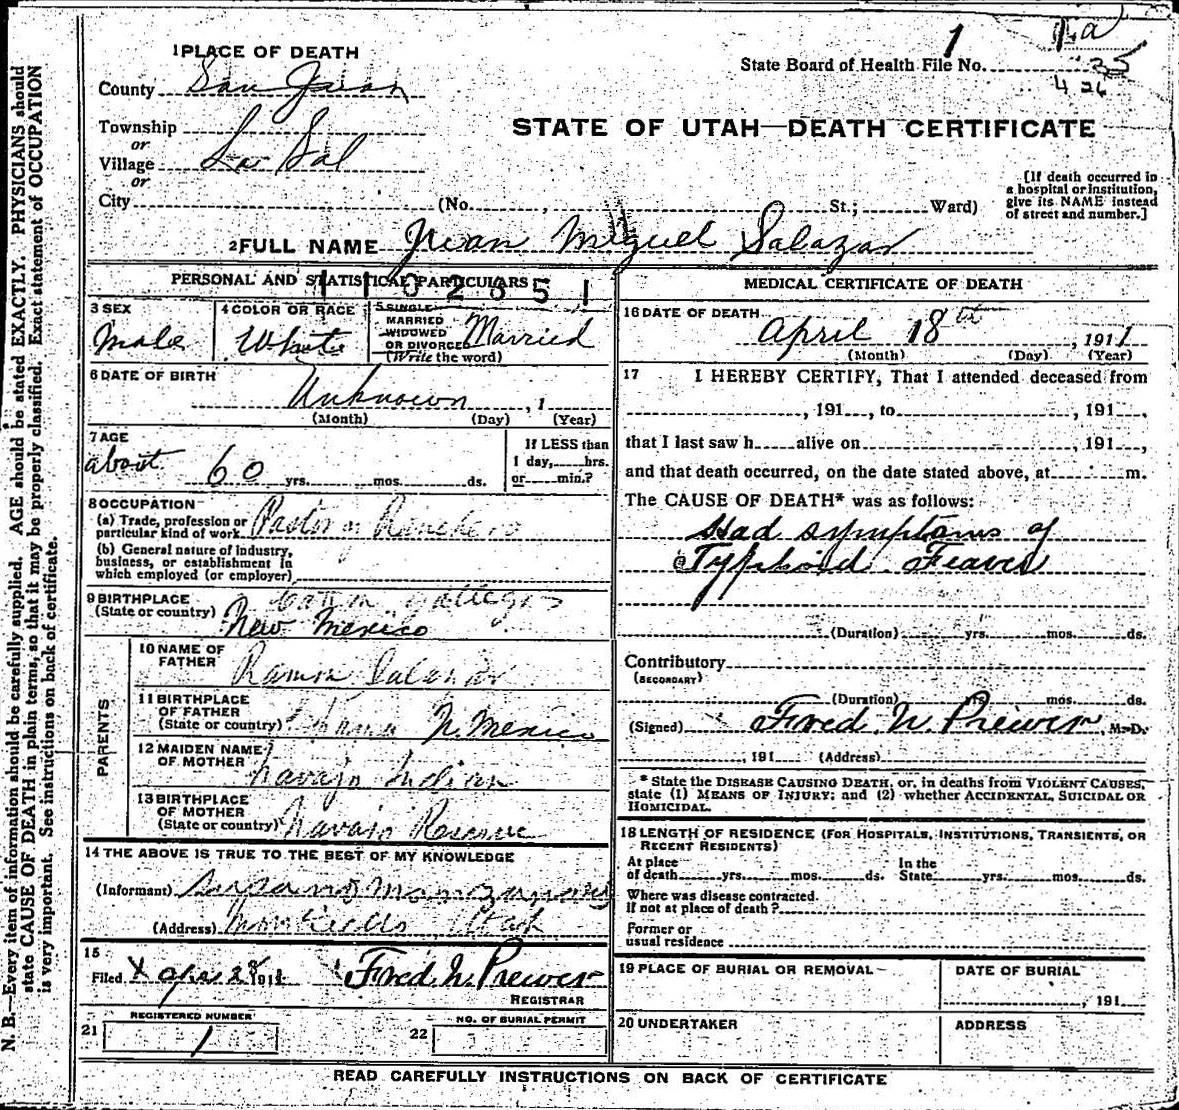 1 PLACE OF DEATH
County San Juan
Township
or
Village La Sal
or
City (No. , St.; Ward)
1
State Board of Health File No. 35
4 26
STATE OF UTAH—DEATH CERTIFICATE
[If death occurred in
a hospital or institution,
give its NAME instead
of street and number.]
2 FULL NAME Juan Miguel Salazar
PERSONAL AND STATISTICAL PARTICULARS
3 SEX
Male
4 COLOR OR RACE
White
5 SINGLE
MARRIED
WIDOWED
OR DIVORCED
(Write the word)
Married
6 DATE OF BIRTH
Unknown , 1
(Month) (Day) (Year)
7 AGE
about 60 yrs. mos. ds.
If LESS than
1 day, hrs.
or min.?
8 OCCUPATION
(a) Trade, profession or
particular kind of work
(b) General nature of industry,
business, or establishment in
which employed (or employer)
9 BIRTHPLACE
(State or country)
New Mexico
PARENTS
10 NAME OF
FATHER
Ramon Salazar
11 BIRTHPLACE
OF FATHER
(State or country) N. Mexico
12 MAIDEN NAME
OF MOTHER
Navajo Indian
13 BIRTHPLACE
OF MOTHER
(State or country) Navajo Reserve
14 THE ABOVE IS TRUE TO THE BEST OF MY KNOWLEDGE
(Informant)
(Address) Monticello Utah
15
Filed X Apr 28 1911 Fred. N. Prewer
REGISTRAR
REGISTERED NUMBER
21 1
NO. OF BURIAL PERMIT
22
MEDICAL CERTIFICATE OF DEATH
16 DATE OF DEATH
April 18th , 1911
(Month) (Day) (Year)
17 I HEREBY CERTIFY, That I attended deceased from
, 191 , to , 191 ,
that I last saw h alive on , 191 ,
and that death occurred, on the date stated above, at m.
The CAUSE OF DEATH* was as follows:
Had symptoms of
Typhoid Feaver
(Duration) yrs. mos. ds.
Contributory
(SECONDARY)
(Duration) yrs. mos. ds.
(Signed) Fred. N. Prewer M.D.
, 191 (Address)
* State the DISEASE CAUSING DEATH, or, in deaths from VIOLENT CAUSES,
state (1) MEANS OF INJURY; and (2) whether ACCIDENTAL, SUICIDAL OR
HOMICIDAL.
18 LENGTH OF RESIDENCE (FOR HOSPITALS, INSTITUTIONS, TRANSIENTS, OR
RECENT RESIDENTS)
At place
of death yrs. mos. ds.
In the
State yrs. mos. ds.
Where was disease contracted.
If not at place of death?
Former or
usual residence
19 PLACE OF BURIAL OR REMOVAL
DATE OF BURIAL
, 191
20 UNDERTAKER
ADDRESS
READ CAREFULLY INSTRUCTIONS ON BACK OF CERTIFICATE
N. B.—Every item of information should be carefully supplied. AGE should be stated EXACTLY. PHYSICIANS should
state CAUSE OF DEATH in plain terms, so that it may be properly classified. Exact statement of OCCUPATION
is very important. See instructions on back of certificate.